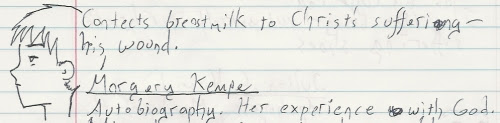 Contects breastmilk to Christ's suffering –
his wound.
Margery Kempe
Autobiography. Her experience with God.